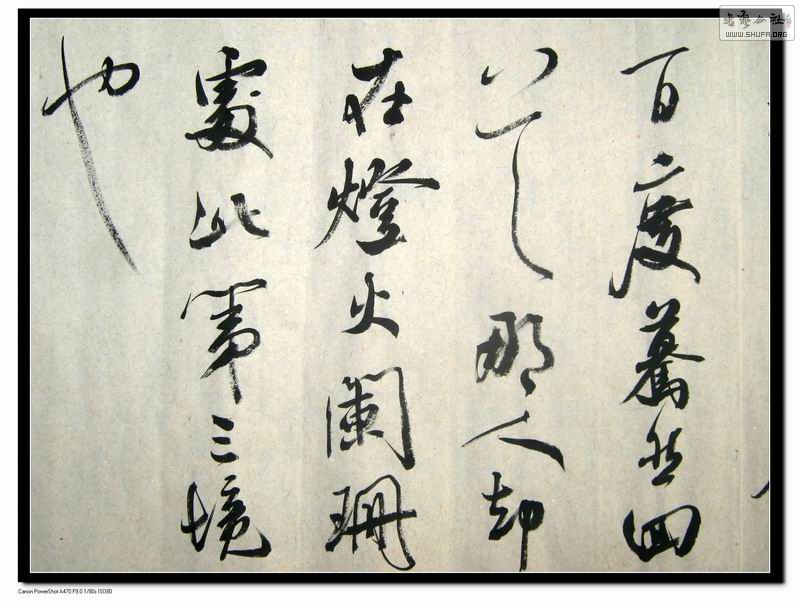 書藝公社
WWW.SHUFA.ORG
百度驀然回
首那人却
在燈火闌珊
處此第三境
也
Canon PowerShot A470 F9.0 1/80s ISO80